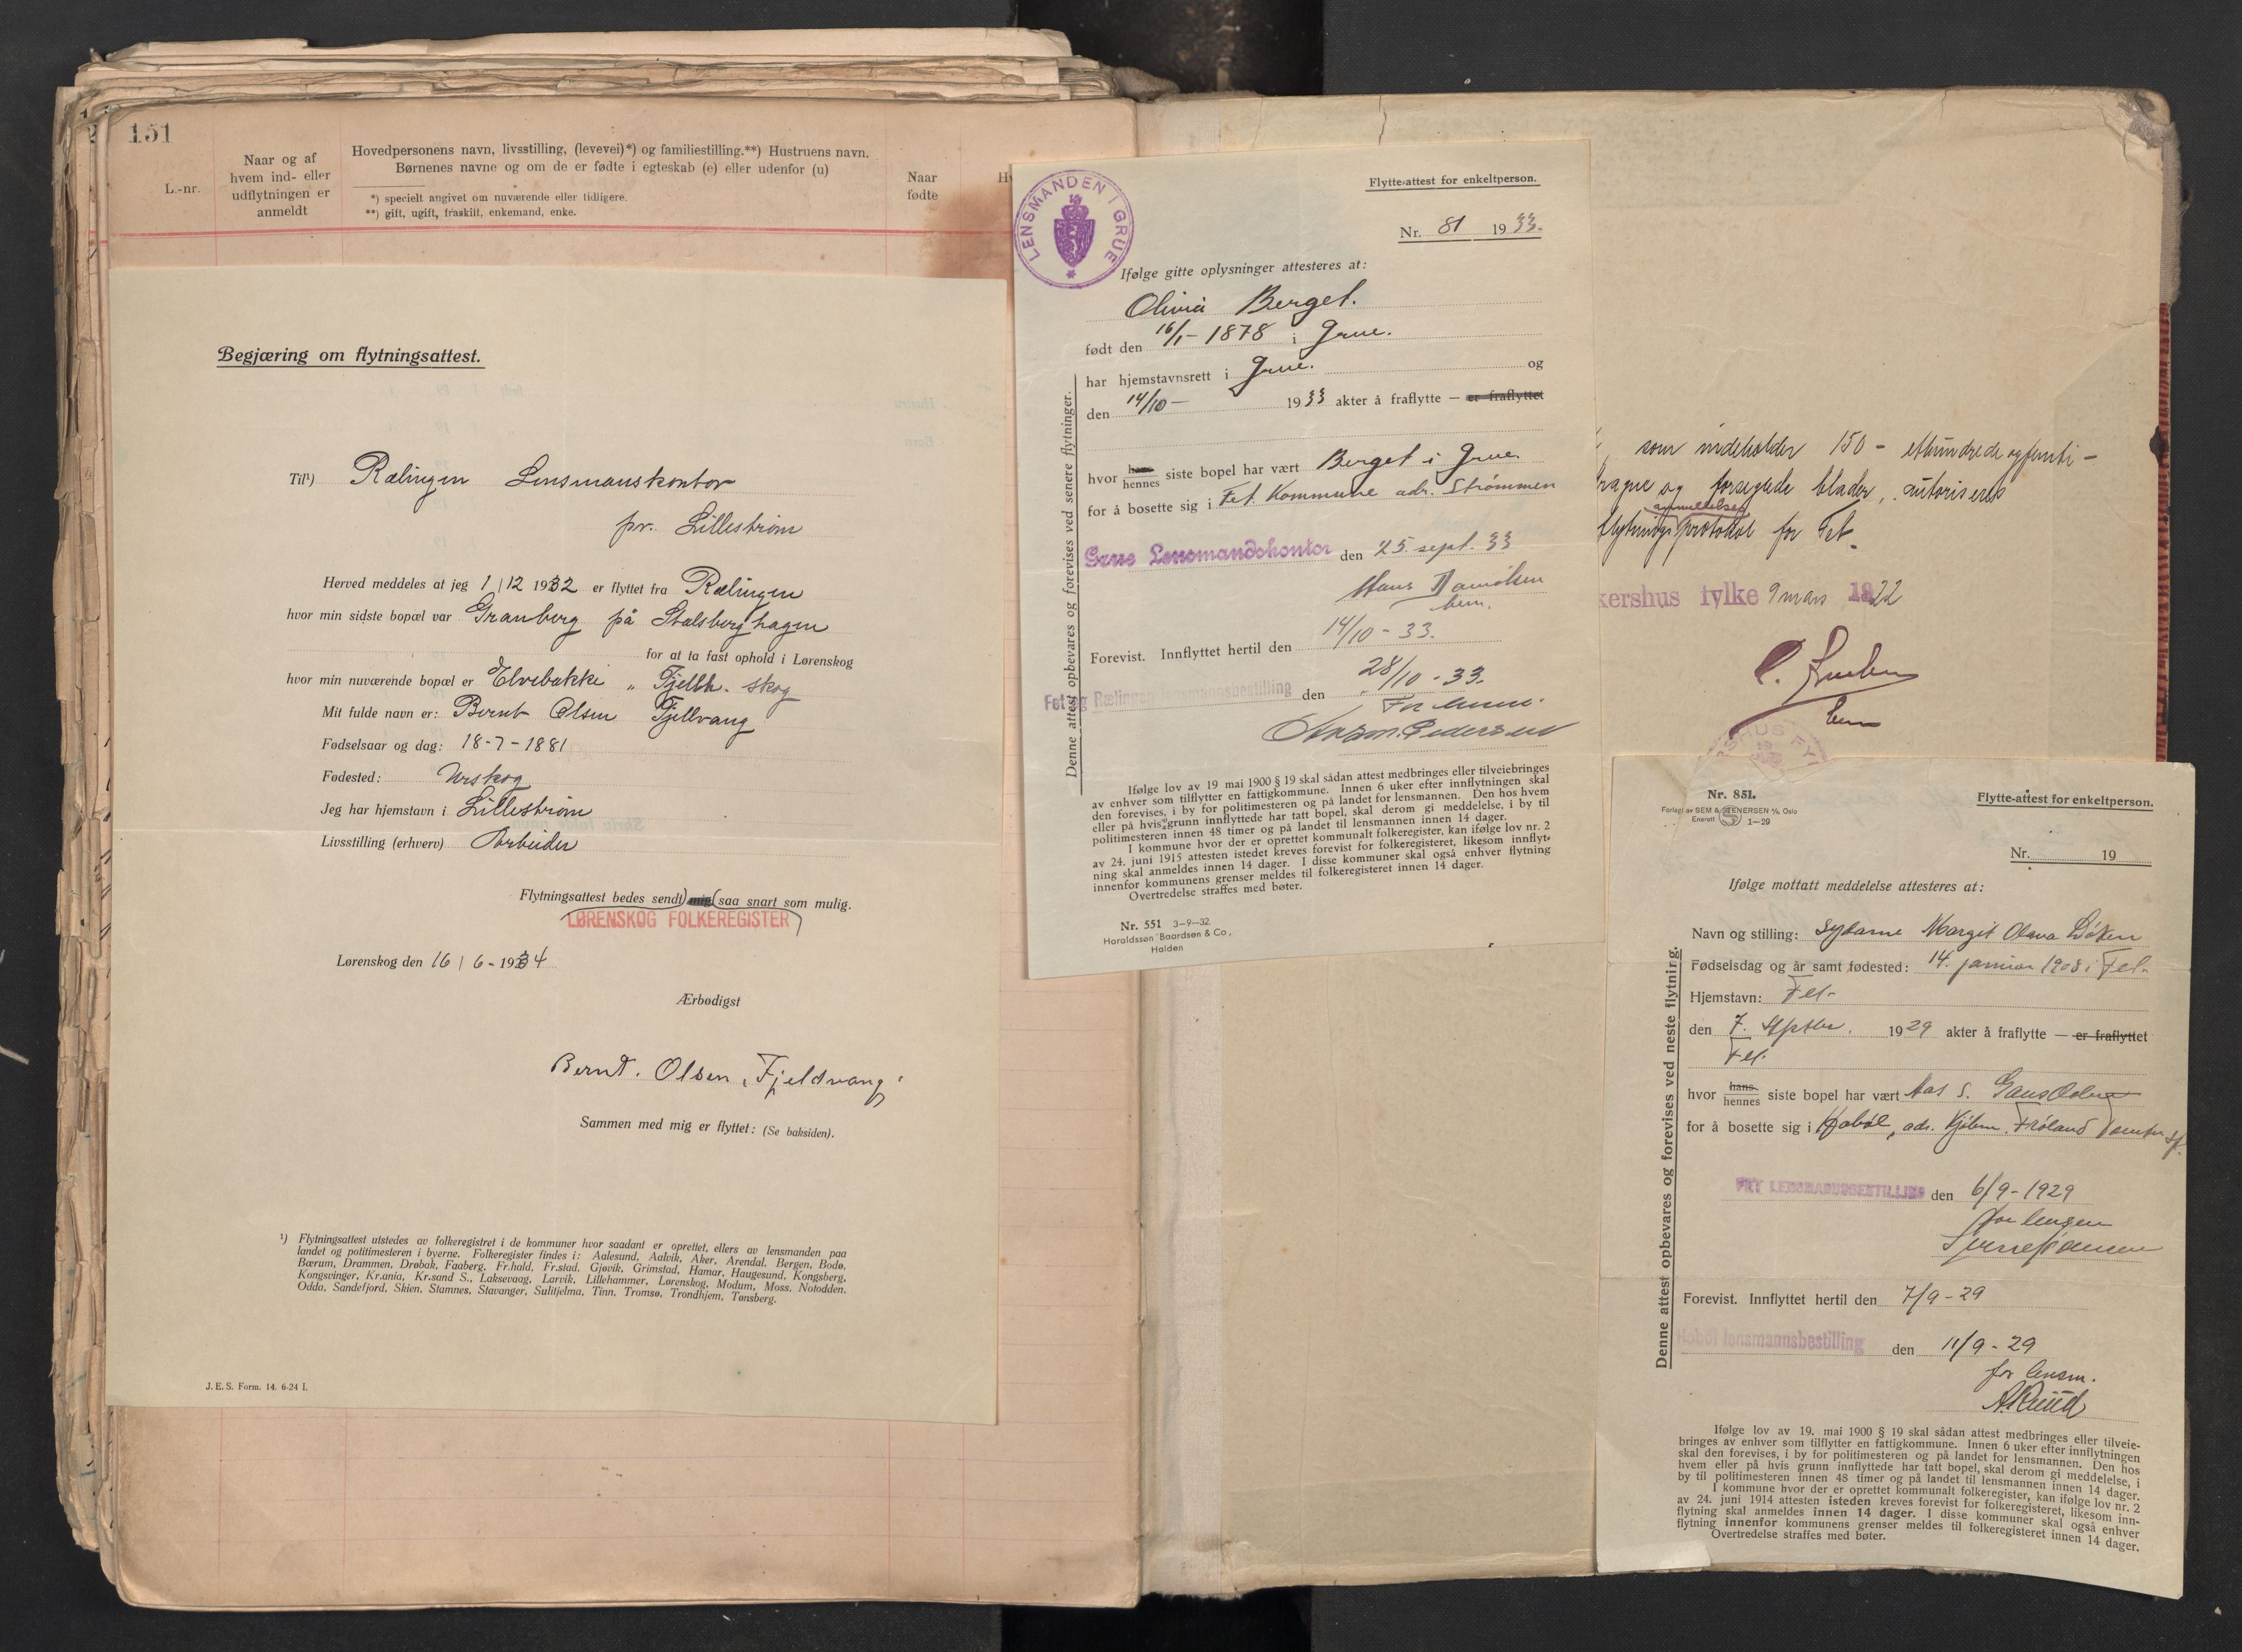 151
L.-nr.
Naar og af
hvem ind- eller
udflytningen er
anmeldt
Hovedpersonens navn, livsstilling, (levevei)*) og familiestilling.**) Hustruens navn.
Børnenes navne og om de er fødte i egteskab (e) eller udenfor (u)
*) specielt angivet om nuværende eller tidligere.
**) gift, ugift, fraskilt, enkemand, enke.
Naar
fødte
Begjæring om flytningsattest.
Til¹) Rælingen Lensmanskontor
pr. Lillestrøm
Herved meddeles at jeg 1/12 1932 er flyttet fra Rælingen
hvor min sidste bopæl var Granberg på Stalsberghagen
for at ta fast ophold i Lørenskog
hvor min nuværende bopæl er Elvebakke „ Fjellh. skog
Mit fulde navn er: Bernt Olsen Fjellvang
Fødselsaar og dag: 18-7-1881
Fødested: Urskog
Jeg har hjemstavn i Lillestrøm
Livsstilling (erhverv) Arbeider
Flytningsattest bedes sendt mig saa snart som mulig.
LØRENSKOG FOLKEREGISTER
Lørenskog den 16/6-1934
Ærbødigst
Bernt. Olsen, Fjeldvang,
Sammen med mig er flyttet: (Se baksiden).
¹) Flytningsattest utstedes av folkeregistret i de kommuner hvor saadant er oprettet, ellers av lensmanden paa
landet og politimesteren i byerne. Folkeregister findes i: Aalesund, Aalvik, Aker, Arendal, Bergen, Bodø,
Bærum, Drammen, Drøbak, Faaberg, Fr.hald, Fr.stad, Gjøvik, Grimstad, Hamar, Haugesund, Kongsberg,
Kongsvinger, Kr.ania, Kr.sand S., Laksevaag, Larvik, Lillehammer, Lørenskog, Modum, Moss, Notodden,
Odda, Sandefjord, Skien, Stamnes, Stavanger, Sulitjelma, Tinn, Tromsø, Trondhjem, Tønsberg.
J. E. S. Form. 14. 6-24 I.
LENSMANDEN I GRUE
Flytte-attest for enkeltperson.
Nr. 81 1933.
Ifølge gitte oplysninger attesteres at:
Olivia Berget.
født den 16/1-1878 i Grue.
har hjemstavnsrett i Grue. og
den 14/10- 1933 akter å fraflytte — er fraflyttet
hvor hans hennes siste bopel har vært Berget i Grue
for å bosette sig i Fet Kommune adr. Strømmen
Grue Lensmandskontor den 25. sept. 33
Hans
lensm.
Forevist. Innflyttet hertil den 14/10-33.
Fet og Rælingen lensmannsbestilling den 28/10-33.
For lensm.
Pedersen
Denne attest opbevares og forevises ved senere flytninger.
Ifølge lov av 19 mai 1900 § 19 skal sådan attest medbringes eller tilveiebringes
av enhver som tilflytter en fattigkommune. Innen 6 uker efter innflytningen skal
den forevises, i by for politimesteren og på landet for lensmannen. Den hos hvem
eller på hvis grunn innflyttede har tatt bopel, skal derom gi meddelelse, i by til
politimesteren innen 48 timer og på landet til lensmannen innen 14 dager.
I kommune hvor der er oprettet kommunalt folkeregister, kan ifølge lov nr. 2
av 24. juni 1915 attesten istedet kreves forevist for folkeregisteret, likesom innflyt-
ning skal anmeldes innen 14 dager. I disse kommuner skal også enhver flytning
innenfor kommunens grenser meldes til folkeregisteret innen 14 dager.
Overtredelse straffes med bøter.
Nr. 551 3-9-32.
Haraldssøn Baardsen & Co,
Halden
som indeholder 150 - ethundredeogfemti -
og forseglede blader, autoriseres
anmeldelses
flytningsprotokol for Fet.
kershus fylke 9 mars 1922
Nr. 851.
Forlagt av SEM & STENERSEN A/S, Oslo
Enerett S 1-29
Flytte-attest for enkeltperson.
Nr. 19
Ifølge mottatt meddelelse attesteres at:
Navn og stilling: Sydame Margit Olava Bøken
Fødselsdag og år samt fødested: 14. januar 1908 i Fet.
Hjemstavn: Fet.
den 7. septbr. 1929 akter å fraflytte — er fraflyttet
Fet.
hvor hans hennes siste bopel har vært Aas s.
for å bosette sig i Hobøl, adr. Kjøbm. Frøland Tomter st.
FET LENSMANDSBESTILLING den 6/9-1929
for lensmen
Forevist. Innflyttet hertil den 7/9-29
Hobøl lensmannsbestilling den 11/9-29
for lensm.
A. Ruud
Denne attest opbevares og forevises ved neste flytning.
Ifølge lov av 19. mai 1900 § 19 skal sådan attest medbringes eller tilveie-
bringes av enhver som tilflytter en fattigkommune. Innen 6 uker efter innflytningen
skal den forevises, i by for politimesteren og på landet for lensmannen. Den hos
hvem eller på hvis grunn innflyttede har tatt bopel, skal derom gi meddelelse, i
by til politimesteren innen 48 timer og på landet til lensmannen innen 14 dager.
I kommune hvor der er oprettet kommunalt folkeregister, kan ifølge lov nr. 2
av 24. juni 1914 attesten isteden kreves forevist for folkeregisteret, likesom inn-
flytning skal anmeldes innen 14 dager. I disse kommuner skal også enhver
flytning innenfor kommunens grenser meldes til folkeregisteret innen 14 dager.
Overtredelse straffes med bøter.